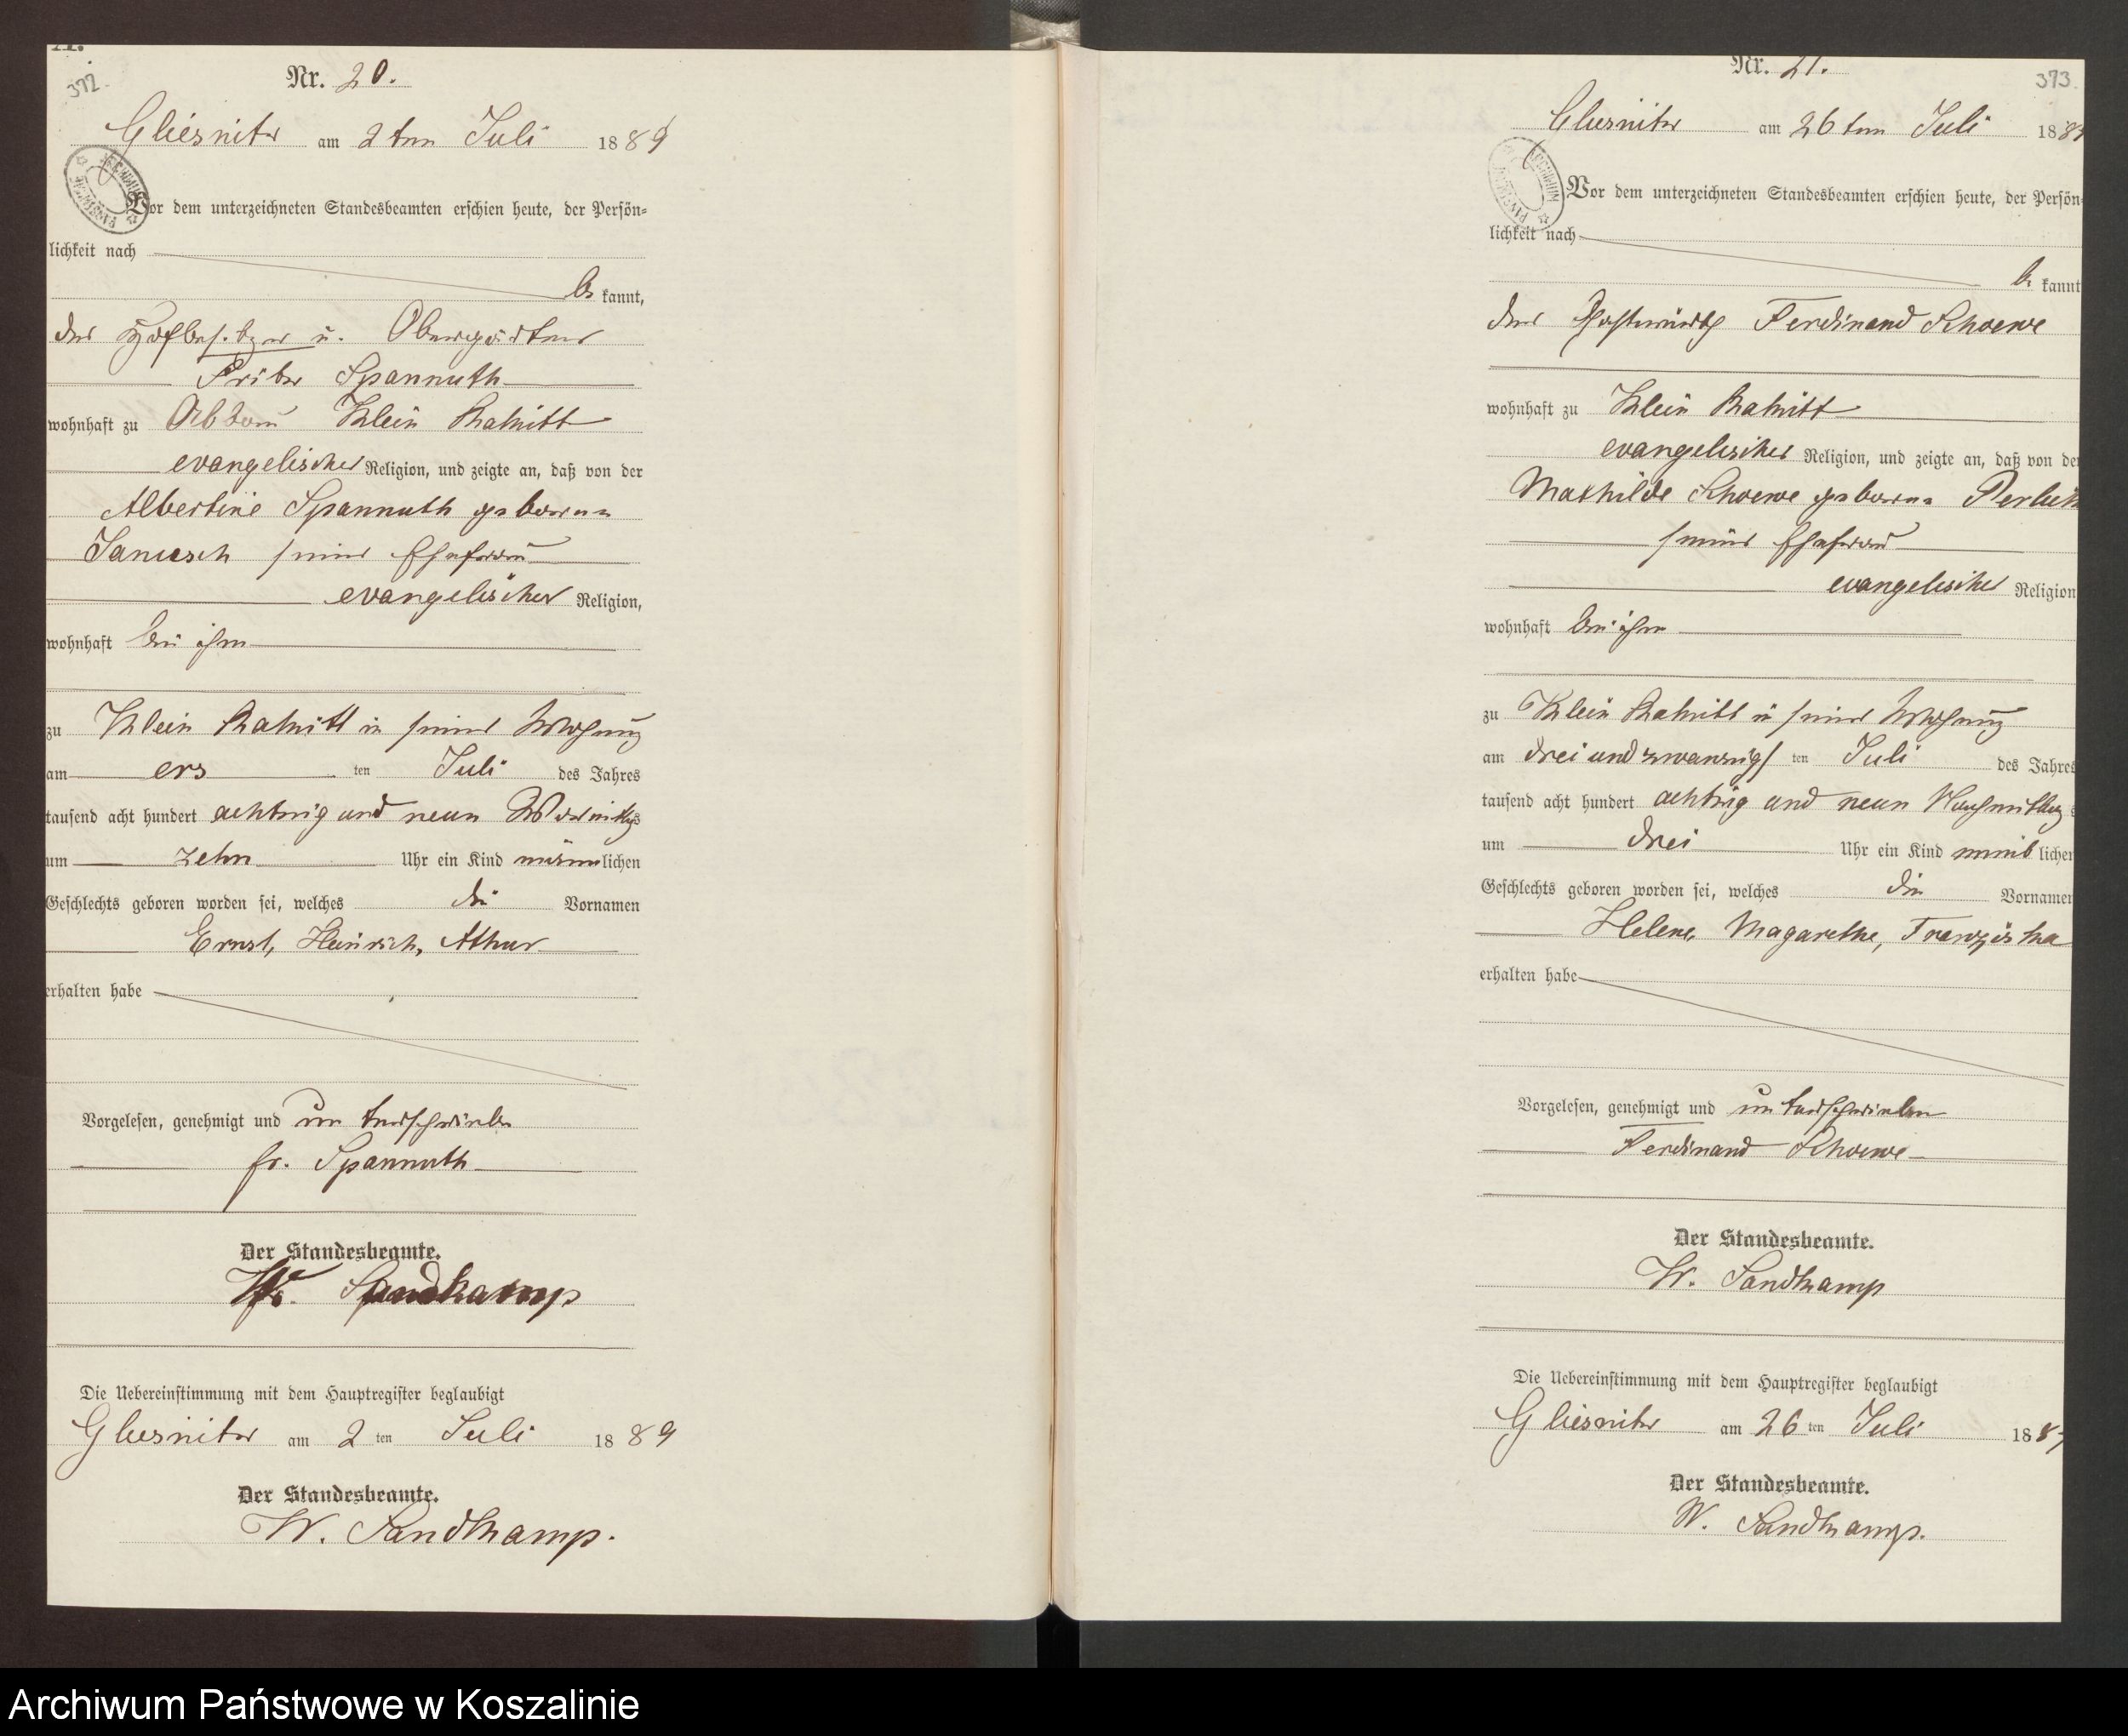 372.
Nr. 20.
Gliesnitz am 2ten Juli 1889
Vor dem unterzeichneten Standesbeamten erschien heute, der Persön-
lichkeit nach
be kannt,
der Hofbesitzer u. Obergärtner
Fritz Spannuth
wohnhaft zu Abbau Klein Rakitt
evangelischer Religion, und zeigte an, daß von der
Albertine Spannuth geborene
seiner Ehefrau
evangelischer Religion,
wohnhaft bei ihm
zu Klein Rakitt in seiner Wohnung
am ers ten Juli des Jahres
tausend acht hundert achtzig und neun Vormittags
um zehn Uhr ein Kind männlichen
Geschlechts geboren worden sei, welches die Vornamen
Ernst, Heinrich, Athur
erhalten habe
Vorgelesen, genehmigt und unterschrieben
Fr. Spannuth
Der Standesbeamte.
W. Sandkamp
Die Uebereinstimmung mit dem Hauptregister beglaubigt
Gliesnitz am 2 ten Juli 1889
Der Standesbeamte.
W. Sandkamp.
Nr. 21.
373.
Gliesnitz am 26ten Juli 188
Vor dem unterzeichneten Standesbeamten erschien heute, der Persön-
lichkeit nach
be kannt
der Gastwirth Ferdinand
wohnhaft zu Klein Rakitt
evangelischer Religion, und zeigte an, daß von der
Mathilde geborene
seiner Ehefrau
evangelischer Religion
wohnhaft bei ihm
zu Klein Rakitt in seiner Wohnung
am drei und zwanzigs ten Juli des Jahres
tausend acht hundert achtzig und neun Nachmittags
um drei Uhr ein Kind weib lichen
Geschlechts geboren worden sei, welches die Vornamen
Helene, Magarethe, Franziska
erhalten habe
Vorgelesen, genehmigt und unterschrieben
Ferdinand
Der Standesbeamte.
W. Sandkamp
Die Uebereinstimmung mit dem Hauptregister beglaubigt
Gliesnitz am 26 ten Juli 188
Der Standesbeamte.
W. Sandkamp.
Archiwum Państwowe w Koszalinie